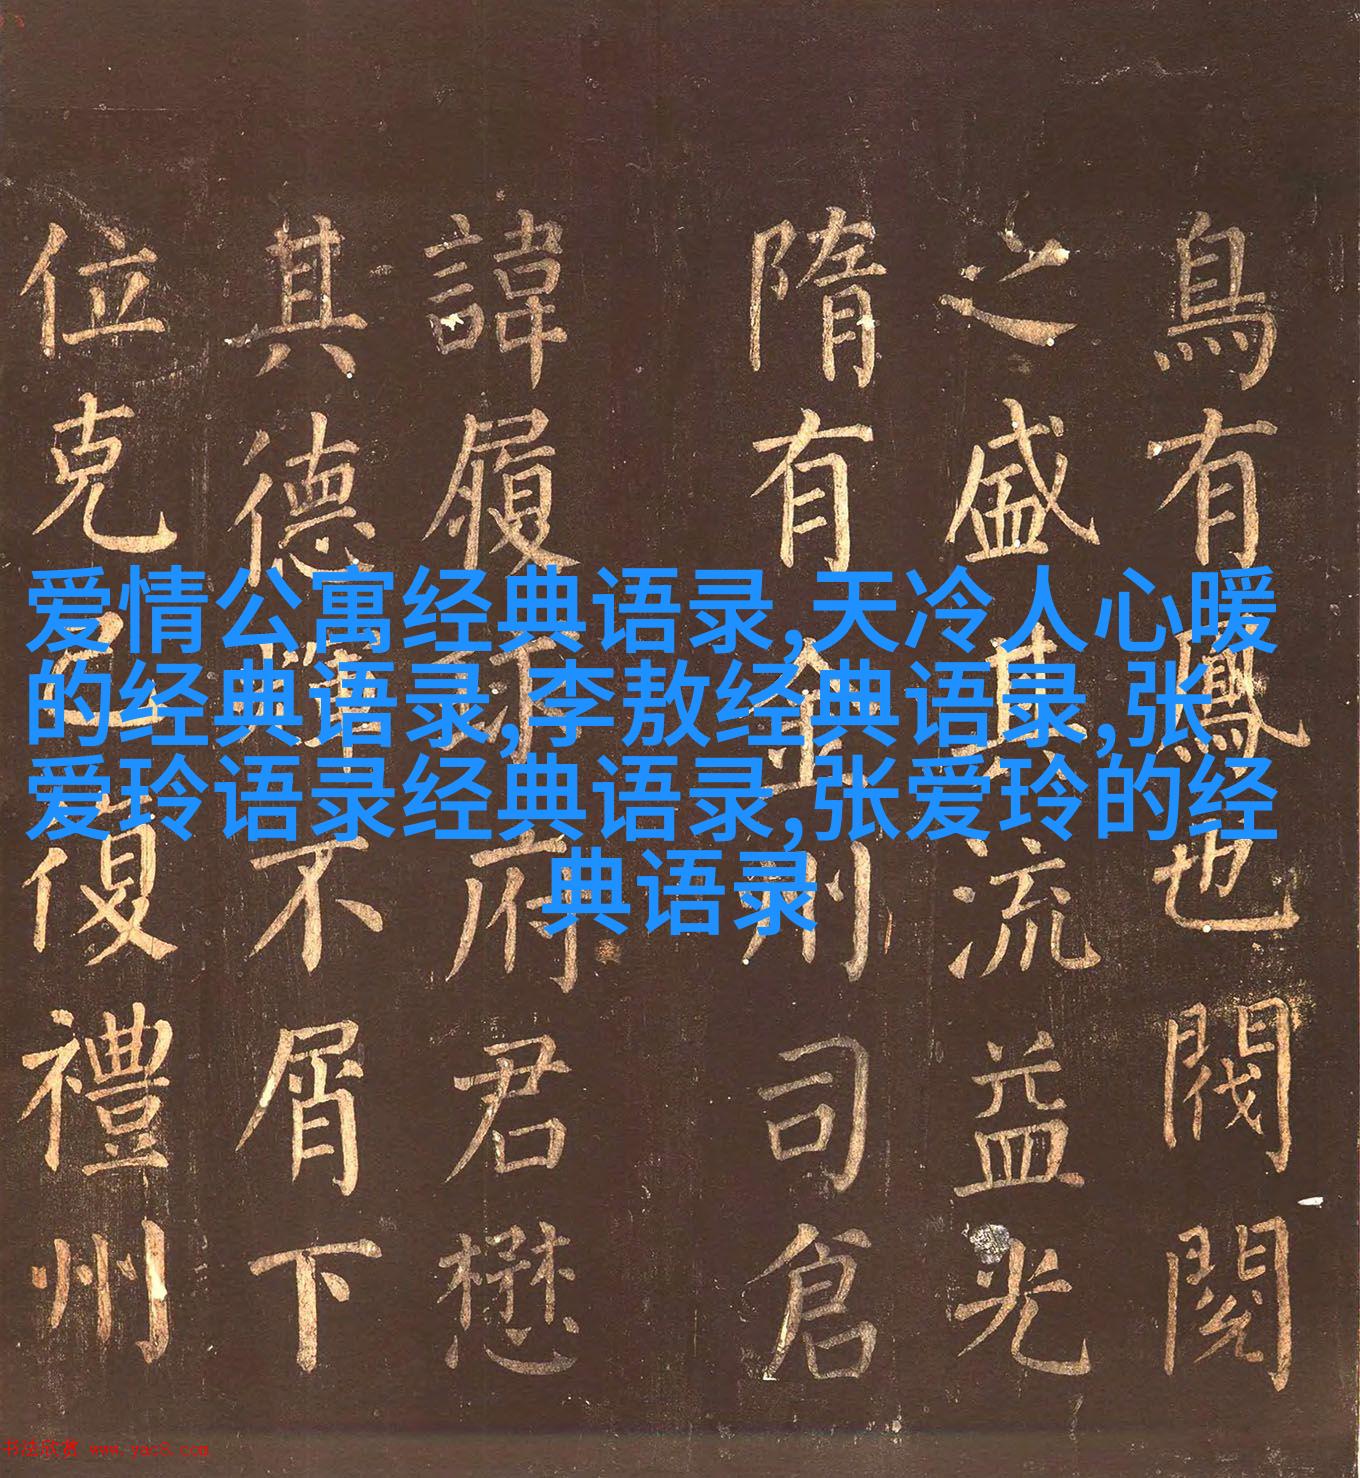 爱情公寓经典语录,天冷人心暖
的经典语录,李敖经典语录,张
爱玲语录经典语录,张爱玲的经
典语录
鳥有鳳也閥閱
之盛其流益光
隋有金州司倉
諱履府君懋
其德不屑下
位克己復禮州
书法欣赏 www.yac8.com